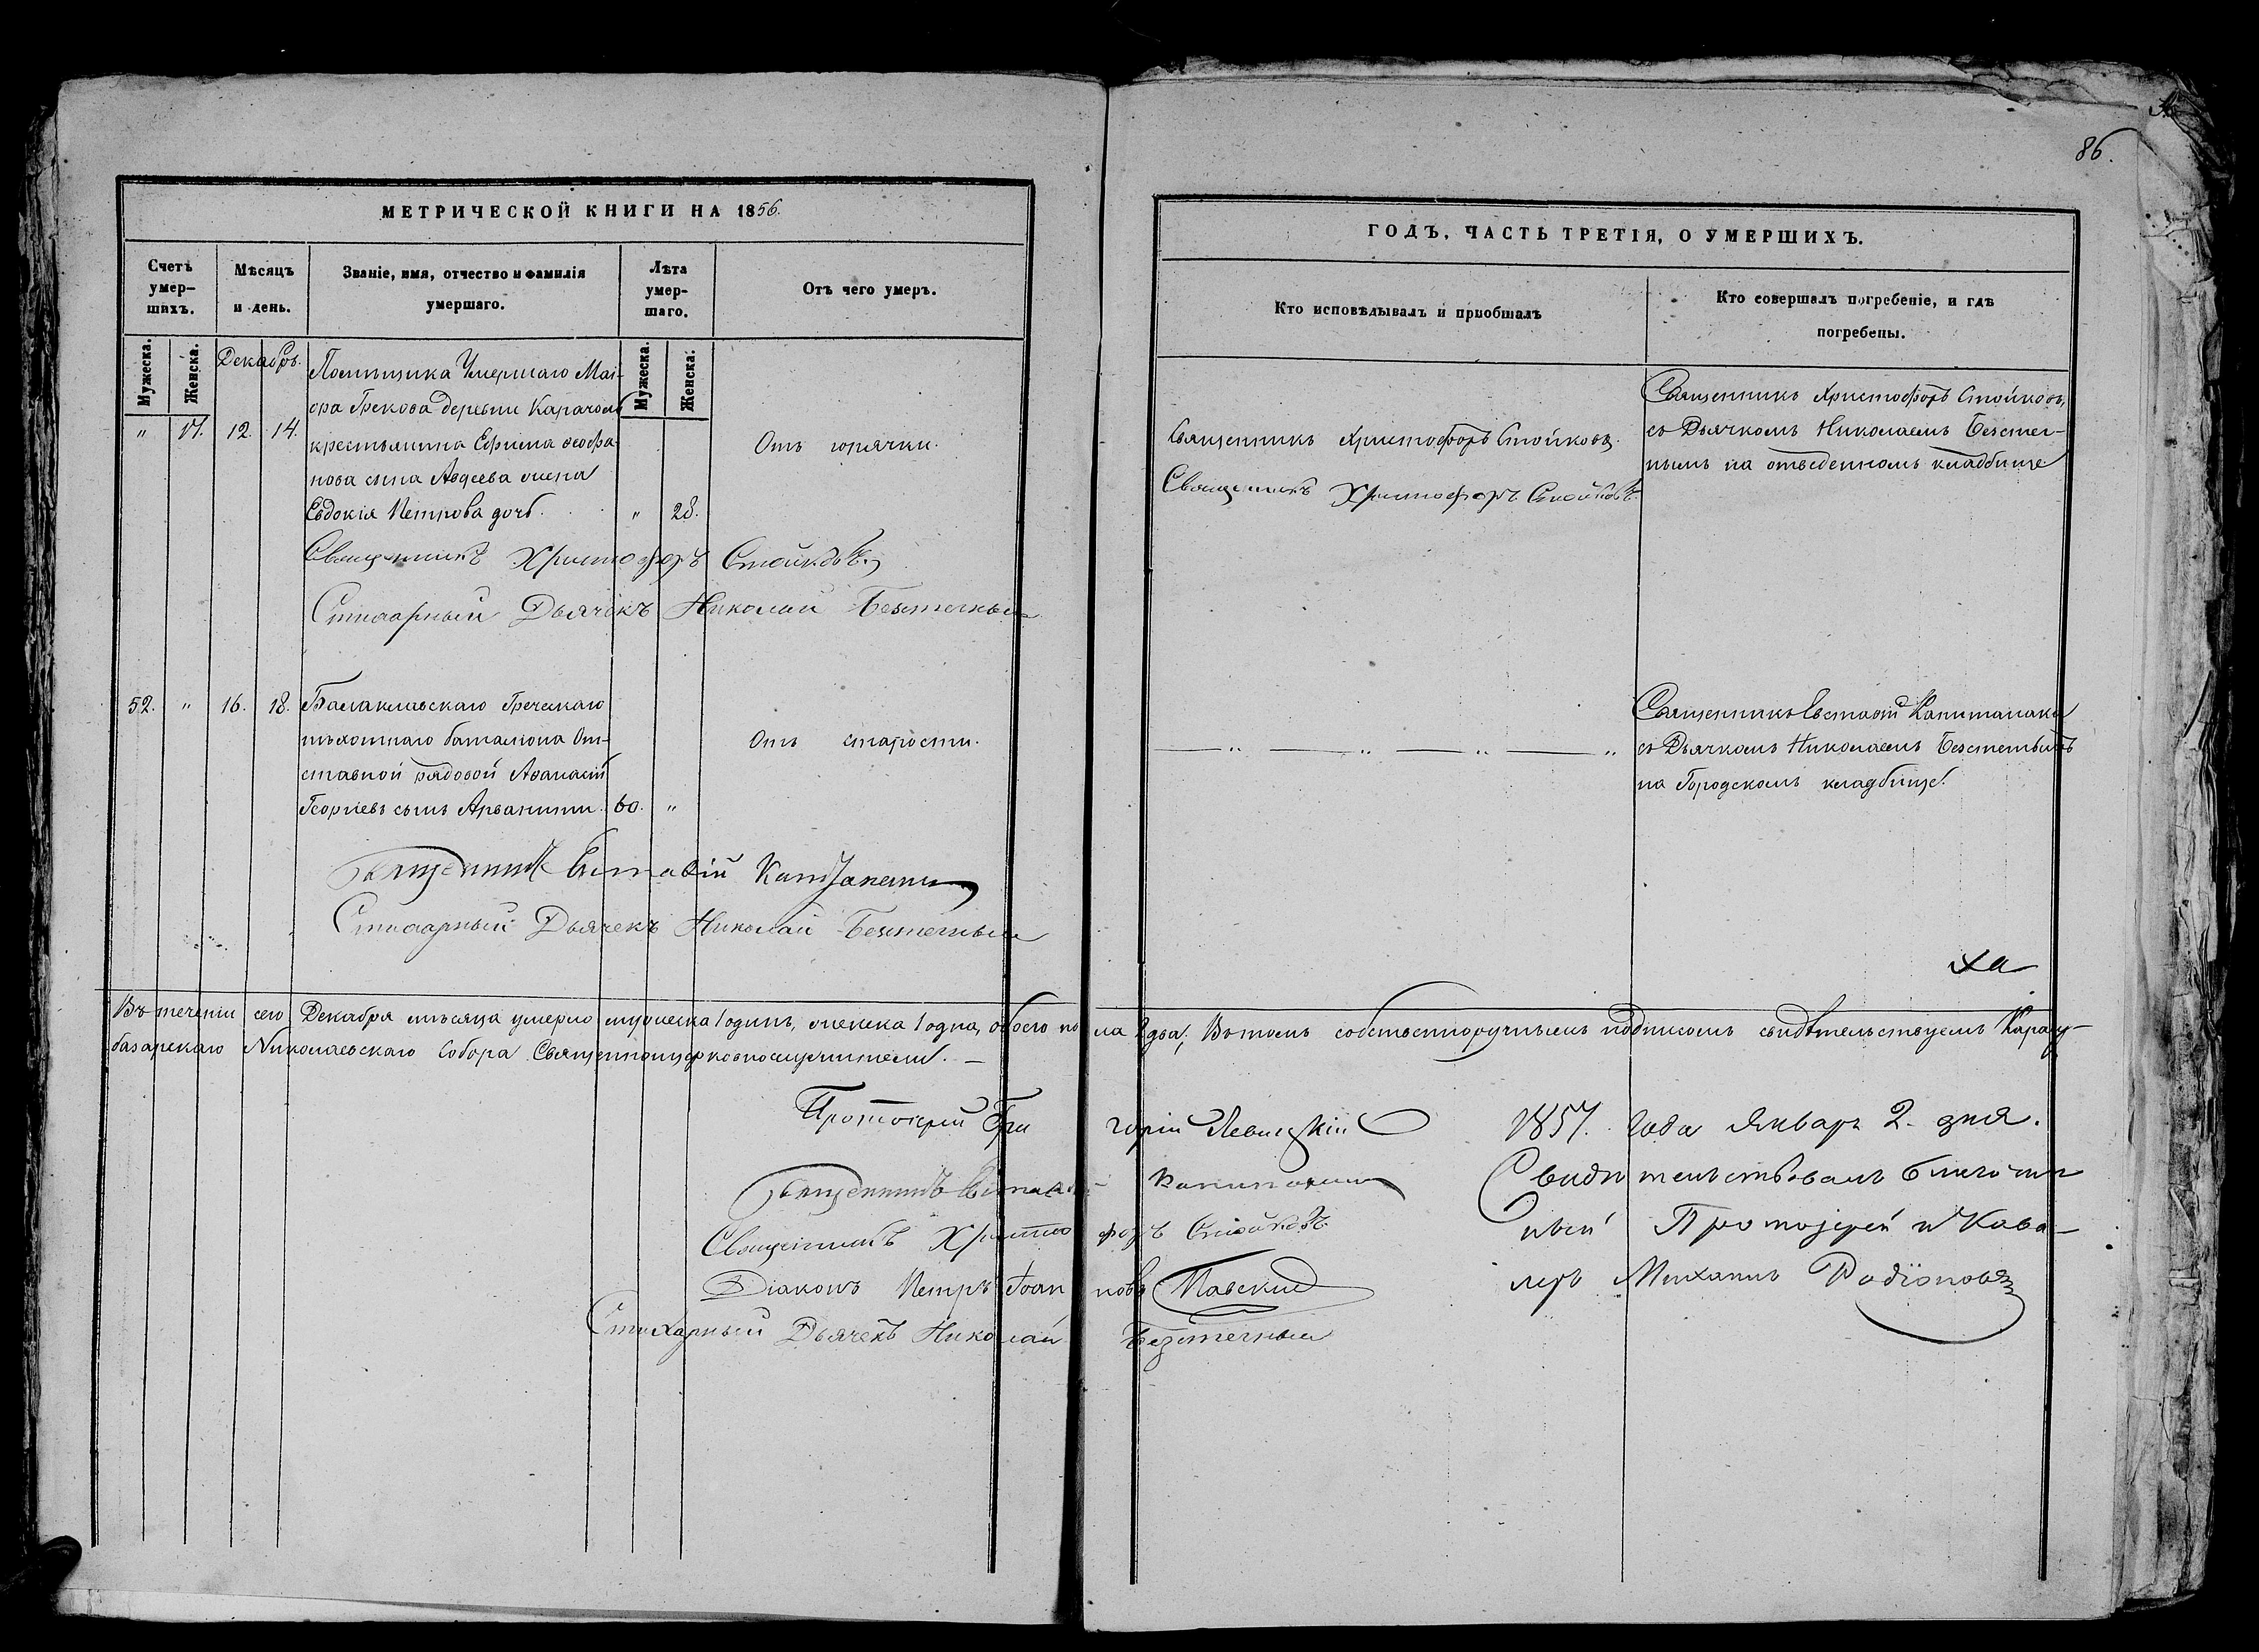 86.
МЕТРИЧЕСКОЙ КНИГИ НА 1856.
Счетъ умер-
шихъ.
Мѣсяцъ
и день.
Званіе, имя, отчество и фамилія
умершаго.
Лѣта
умер-
шаго.
Отъ чего умеръ.
Мужеска.
Женска.
Декабрь.
Мужеска.
Женска.
Помѣщика Умершаго Маі-
ора Грекова деревни Карачолъ
" 17. 12. 14. крестьянина Ефима Ѳеофа- Отъ горячки.
нова сына Авдеева жена
Евдокія Петрова дочь. " 28.
Священникъ Христофоръ Стойковъ.
Стихарный Дьячекъ Николай Безтечный
52. " 16. 18. Балаклавскаго Греческаго
пѣхотнаго баталіона От- Отъ старости.
ставной рядовой Аѳанасій
Георгіевъ сынъ Арванити. 60. "
Священникъ Евстафій
Стихарный Дьячекъ Николай
ГОДЪ, ЧАСТЬ ТРЕТІЯ, О УМЕРШИХЪ.
Кто исповѣдывалъ и пріобщалъ
Кто совершалъ погребеніе, и гдѣ
погребены.
Священникъ Христофоръ Стойковъ,
Священникъ Христофоръ Стойковъ. съ Дьячкомъ Николаемъ
на отведенномъ кладбище
Священникъ Христофоръ Стойковъ
Священникъ Евстафій Капитанаки
съ Дьячкомъ Николаемъ
на Городскомъ кладбище.
Въ теченіи сего Декабря мѣсяца умерло мужеска 1 одинъ, женска 1 одна, обоего пола 2 два; Въ томъ собственноручнымъ подписомъ свидѣтельствуемъ Карасу-
базарскаго Николаевскаго Собора Священноцерковнослужители. —
Протоіерей Григорій Левицкій
Священникъ Евстафій Капитанаки
Священникъ Христофоръ Стойковъ
Діаконъ Петръ Іоанновъ Павскій
Стихарный Дьячекъ Николай
1857. Года Январь 2. дня.
Свидѣтельствовалъ Благочин-
ный Протоіерей и Кава-
леръ Михаилъ Родіоновъ